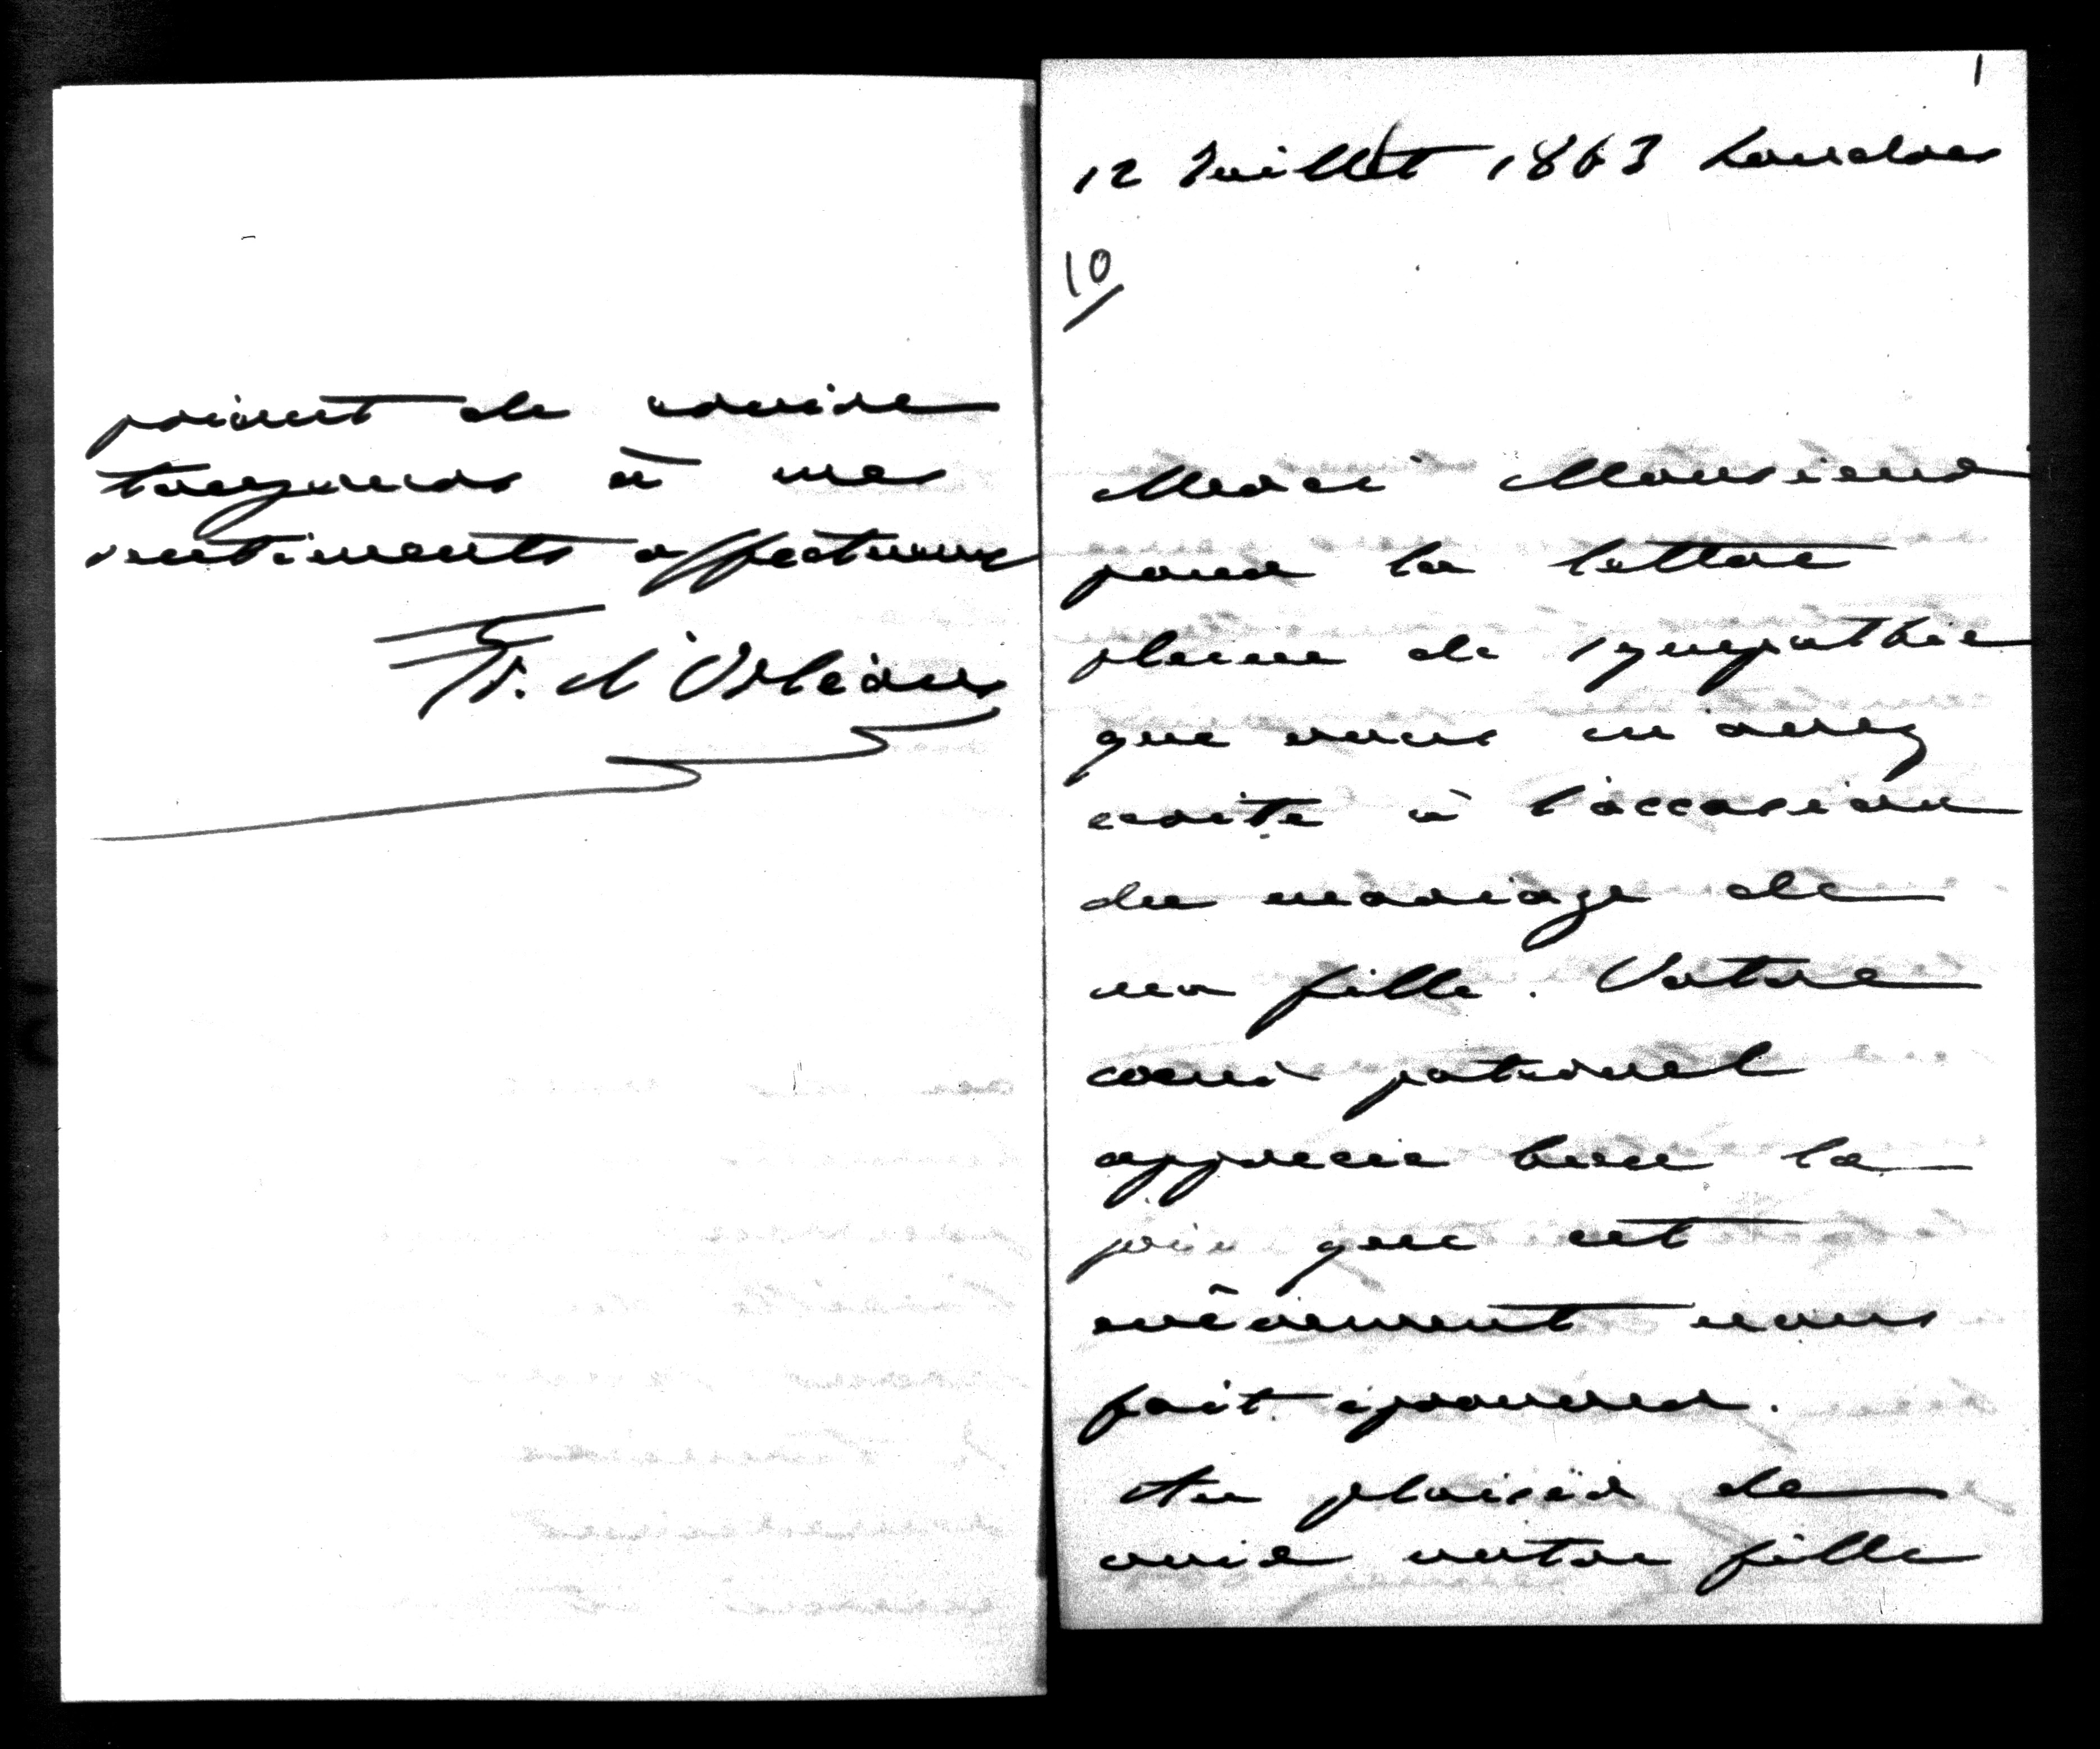 prient de croire
toujours à mes
sentiments affectueux
Fr. d'Orléans
1
12 Juillet 1863 Londres
10
Merci Monsieur
pour la lettre
pleine de sympathie
que vous m'avez
ecrite à l'occasion
du mariage de
ma fille. Votre
coeur paternel
apprecie bien la
joie que cet
evènement nous
fait eprouver.
Au plaisir de
voir votre fille